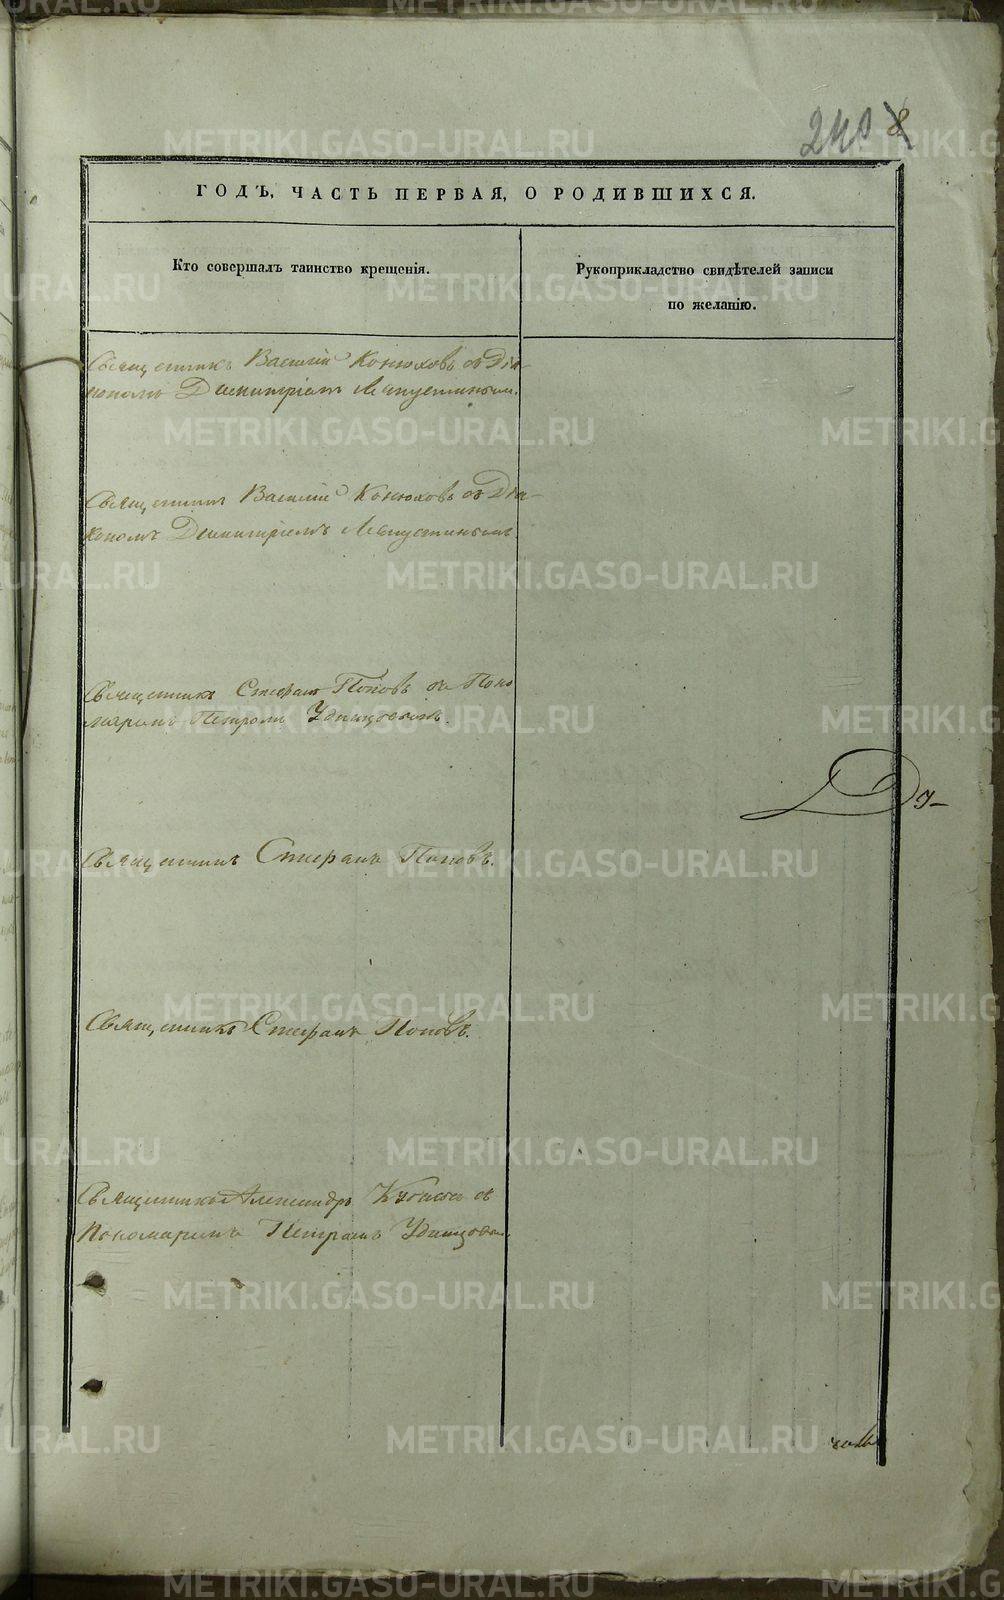 240 8
ГОДЪ, ЧАСТЬ ПЕРВАЯ, О РОДИВШИХСЯ.
Кто совершалъ таинство крещенія.
Рукоприкладство свидѣтелей записи
по желанію.
Священникъ Василій Конюховъ съ Діа-
кономъ Димитріемъ Ляпустинымъ.
Священникъ Василій Конюховъ съ Діа-
кономъ Димитріемъ Ляпустинымъ
Священникъ Стефанъ Поповъ съ Поно
маремъ Петромъ Удинцовымъ.
Ду-
Священникъ Стефанъ Поповъ.
Священникъ Стефанъ Поповъ.
Священникъ Александръ съ
Пономаремъ Петромъ Удинцовым.
METRIKI.GASO-URAL.RU